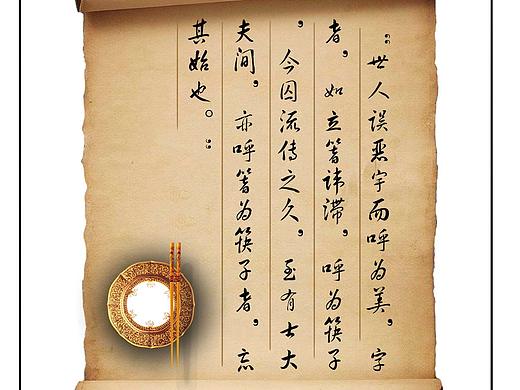 “世人误恶字而呼为美，字
者，如立箸讳滞，呼为筷子
，今因流传之久，至有士大
夫间，亦呼箸为筷子者，忘
其始也。”